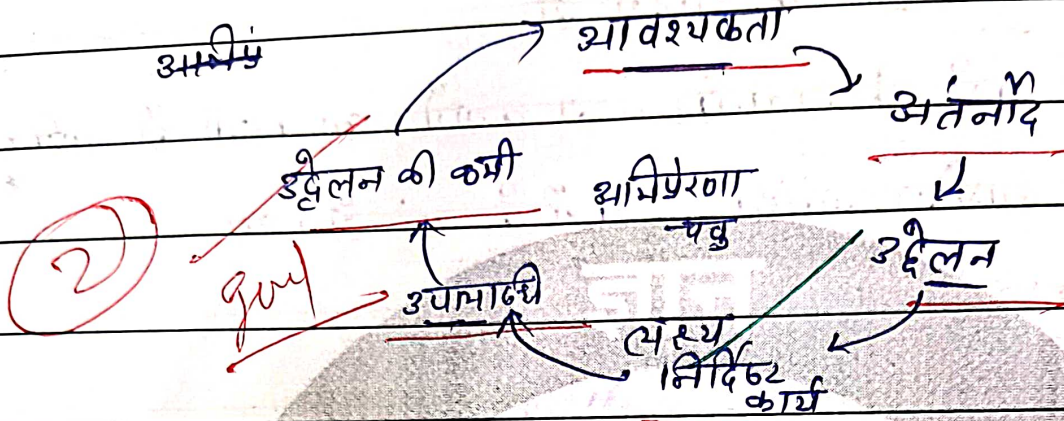 आवश्यकता
अंतर्नोद
उद्वेलन की कमी
अभिप्रेरणा
चक्र
उद्वेलन
2
उपलब्धि
लक्ष्य
निर्दिष्ट
कार्य